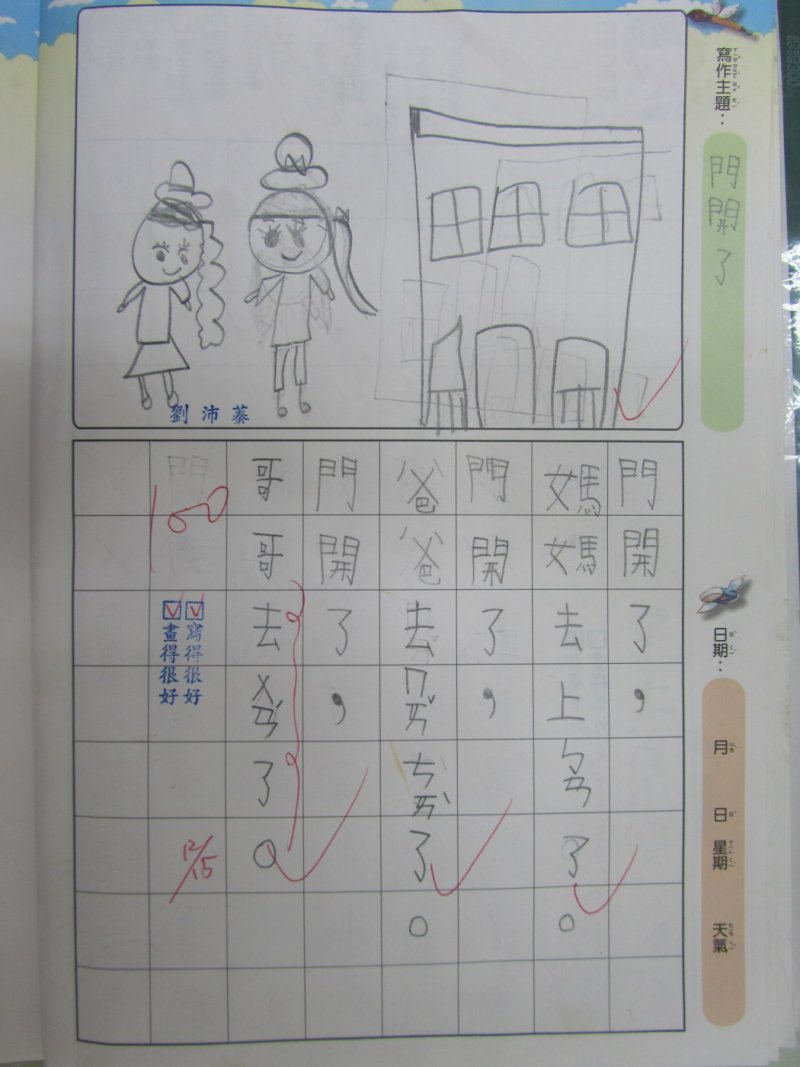 寫作主題：
門開了
日期：
月
日
星期
天氣
劉沛蓁
門開了，
媽媽去上ㄅㄢ了。
門開了，
爸爸去ㄇㄞˇㄘㄞˋ了。
門開了，
哥哥去ㄨㄢˊ了。
100
寫得很好
畫得很好
12/15